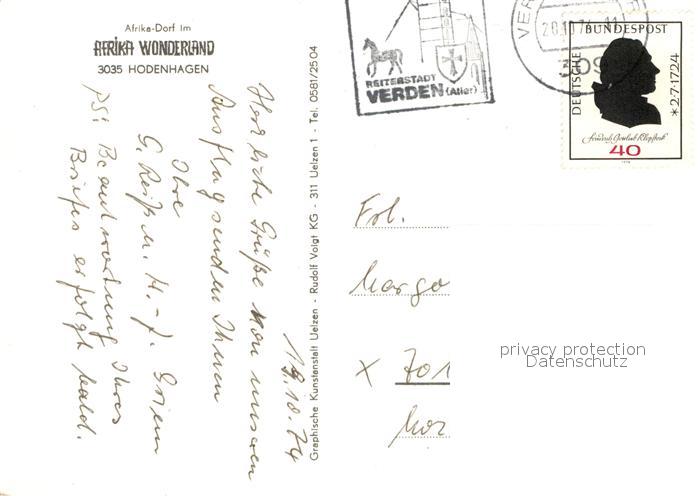 Afrika-Dorf im
AFRIKA WONDERLAND
3035 HODENHAGEN
19.10.74
Herzliche Grüße von unseren
Ausflug senden Ihnen
Ihre
G. Reiß u. H.-J.
PS: Beantwortung Ihres
Briefes erfolgt bald.
Graphische Kunstanstalt Uelzen - Rudolf Voigt KG - 311 Uelzen 1 - Tel. 0581/2504
REITERSTADT
VERDEN (Aller)
VER
309
DEUTSCHE BUNDESPOST
*2·7·1724
Friedrich Gottlieb Klopstock
40
Frl.
Margo
x 701
privacy protection
Datenschutz